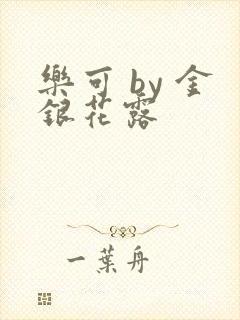 樂可 by 金
銀花露
一葉舟